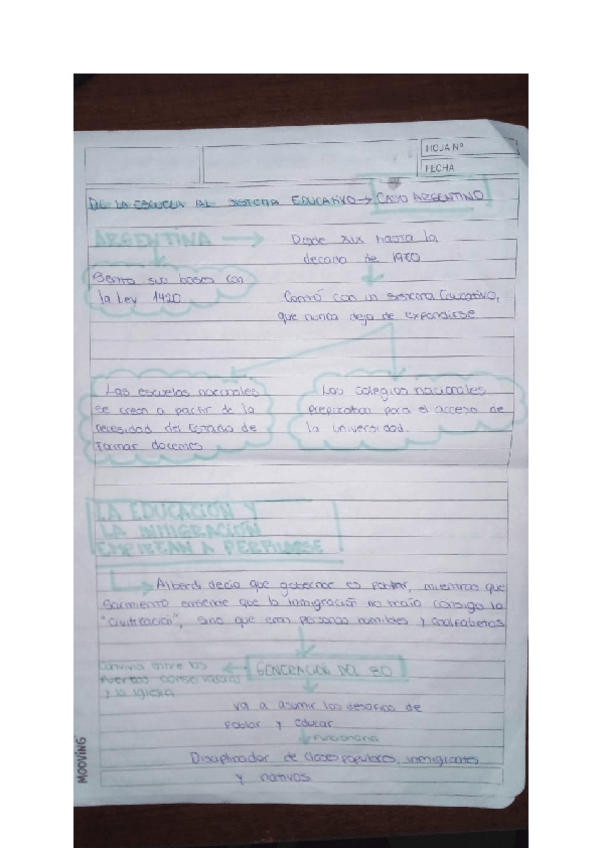 HOJA Nº
FECHA
DE LA ESCUELA AL SISTEMA EDUCATIVO → CASO ARGENTINO
ARGENTINA → Desde XIX hasta la
decada de 1980
Sento sus bases con
la Ley 1420
Contó con un sistema Educativo,
que nunca deja de expandirse
Las escuelas normales
se crean a partir de la
necesidad del Estado de
Formar docentes
Los colegios nacionales
preparaban para el acceso de
la universidad.
LA EDUCACION Y
LA INMIGRACION
EMPIEZAN A PERFILARSE
Alberdi decia que gobernar es poblar, mientras que
Sarmiento entiende que la inmigración no traia consigo la
"civilización", sino que eran personas humildes y analfabetas
Convivia entre los
fuertes conservadores
y la iglesia
← GENERACION DEL 80
va a asumir los desafios de
Poblar y educar
Funcionaria
Disciplinador de clases populares, inmigrantes
y nativos
MOOVING